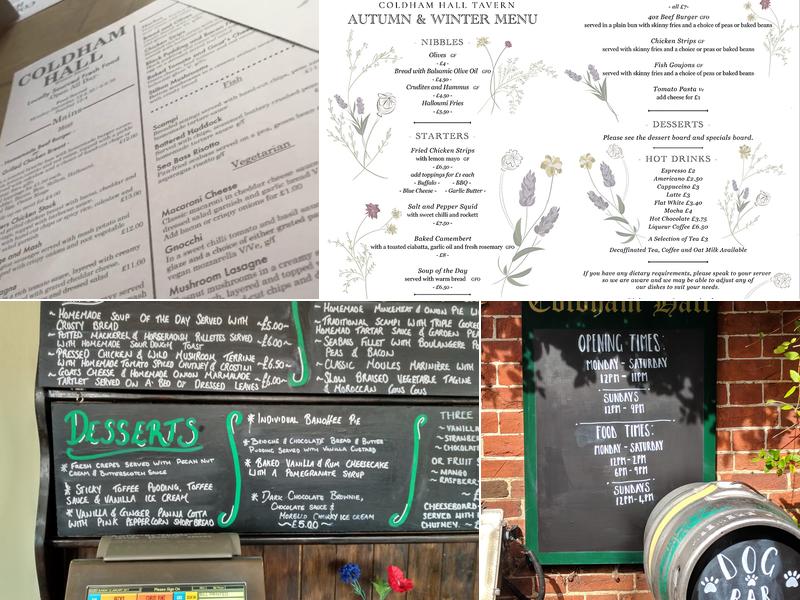 COLDHAM
HALL
Locally Sourced Fresh Food
Open All Day
Mains
Meat
£12.00
£13.00
£12.00
£11.00
Fish
Scampi
Battered Haddock
Sea Bass Risotto
asparagus
Vegetarian
Macaroni Cheese
Classic macaroni in cheddar cheese sauce
dressed salad garnish and garlic bread
Add bacon or crispy onions for £1.00
Gnocchi
In a silky tomato and basil
glaze and a choice of either grated
vegan mozzarella V/Ve, gf
Mushroom Lasagne
COLDHAM HALL TAVERN
AUTUMN & WINTER MENU
NIBBLES
Olives GF
- £4 -
Bread with Balsamic Olive Oil GFO
- £4.50 -
Crudites and Hummus GF
- £4.50 -
Halloumi Fries
- £5.50 -
STARTERS
Fried Chicken Strips
with lemon mayo GF
- £6.50 -
add toppings for £1 each
- Buffalo - - BBQ -
- Blue Cheese - - Garlic Butter -
Salt and Pepper Squid
with sweet chilli and rockett
- £7.50 -
Baked Camembert
with a toasted ciabatta, garlic oil and fresh rosemary GFO
- £8 -
Soup of the Day
served with warm bread GFO
- £6.50 -
- all £7-
4oz Beef Burger GFO
served in a plain bun with skinny fries and a choice of peas or baked beans
Chicken Strips GF
served with skinny fries and a choice of peas or baked beans
Fish Goujons GF
served with skinny fries and a choice of peas or baked beans
Tomato Pasta Ve
add cheese for £1
DESSERTS
Please see the dessert board and specials board.
HOT DRINKS
Espresso £2
Americano £2.50
Cappuccino £3
Latte £3
Flat White £3.40
Mocha £4
Hot Chocolate £3.75
Liqueur Coffee £6.50
A Selection of Tea £3
Decaffinated Tea, Coffee and Oat Milk Available
If you have any dictary requirements, please speak to your server
so we are and we may be able to adjust any of
our dishes to suit your needs.
~ HOMEMADE SOUP OF THE DAY SERVED WITH
CRUSTY BREAD ~£5.00~
~ POTTED MACKEREL & HORSERADISH RILLETTES SERVED
WITH HOMEMADE SOUR DOUGH TOAST ~£6.00~
~ PRESSED CHICKEN & WILD MUSHROOM TERRINE
WITH HOMEMADE TOMATO SPICED CHUTNEY & CROSTINI ~£6.50~
~ GOATS CHEESE & HOMEMADE ONION MARMALADE
TARTLET SERVED ON A BED OF DRESSED LEAVES ~£6.00~
HOMEMADE MINCEMEAT & ONION PIE
~ TRADITIONAL SCAMPI WITH TRIPLE COOKED
HOMEMADE TARTAR SAUCE & GARDEN PEA
~ SEABASS FILLET WITH BOULANGERE PO
PEAS & BACON
~ CLASSIC MOULES MARINIÈRE WITH
~ SLOW BRAISED VEGETABLE TAGINE
& MOROCCAN COUS COUS
DESSERTS
* FRESH CREPES SERVED WITH PECAN NUT
CREAM & BUTTERSCOTCH SAUCE
* STICKY TOFFEE PUDDING, TOFFEE
SAUCE & VANILLA ICE CREAM
* VANILLA & GINGER PANNA COTTA
WITH PINK PEPPERCORN SHORTBREAD
* INDIVIDUAL BANOFFEE PIE
* BRIOCHE & CHOCOLATE BREAD & BUTTER
PUDDING SERVED WITH VANILLA CUSTARD
* BAKED VANILLA & RUM CHEESECAKE
WITH A POMEGRANATE SYRUP
* DARK CHOCOLATE BROWNIE,
CHOCOLATE SAUCE &
MORELLO CHERRY ICE CREAM
~£5.00~
THREE
~ VANILLA
~ STRAWBE
~ CHOCOLAT
OR FRUIT S
~ MANGO
~ RASPBERR
CHEESEBOARD
SERVED WITH
CHUTNEY. ~£
Please Sign On
Coldham Hall
OPENING TIMES:
MONDAY - SATURDAY
12PM - 11PM
SUNDAYS
12PM - 9PM
FOOD TIMES:
MONDAY - SATURDAY
12PM - 2PM
6PM - 9PM
SUNDAYS
12PM - 4PM
DOG
BAR